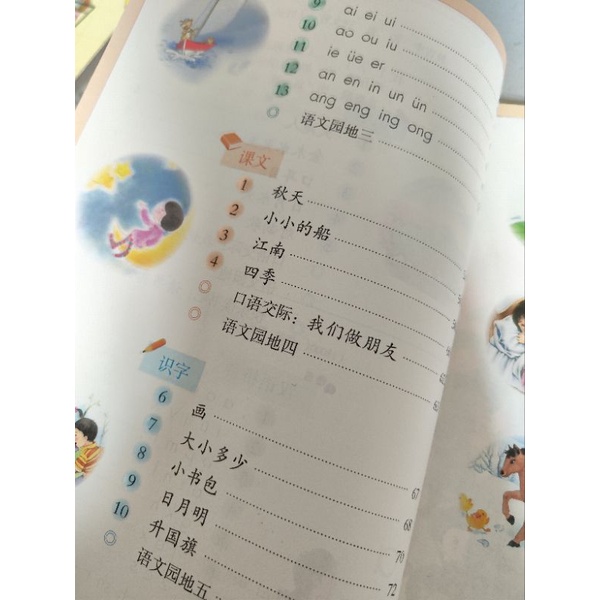 9 ai ei ui
10 ao ou iu
11 ie üe er
12 an en in un ün
13 ang eng ing ong
◎ 语文园地三
课文
1 秋天
2 小小的船
3 江南
4 四季
◎ 口语交际：我们做朋友
◎ 语文园地四
识字
6 画 67
7 大小多少 68
8 小书包 70
9 日月明 72
10 升国旗
◎ 语文园地五